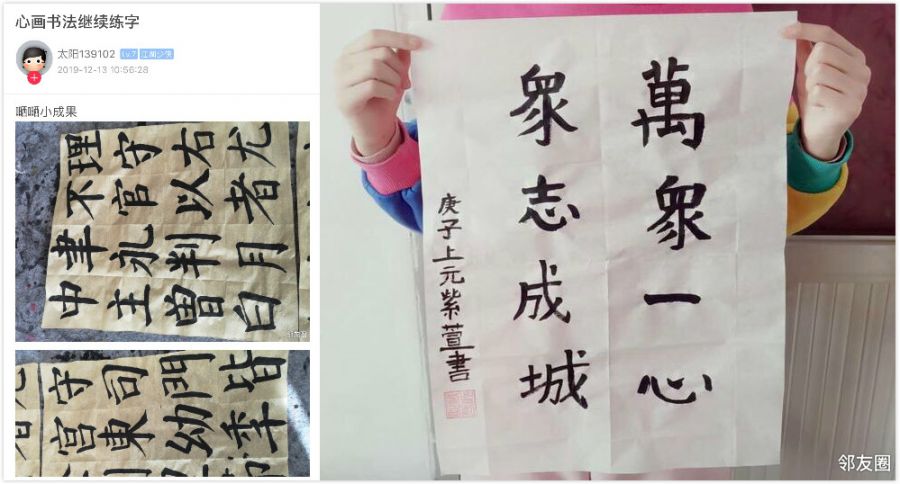 心画书法继续练字
太阳139102 Lv.7 江湖少侠
2019-12-13 10:56:28
嗮嗮小成果
尤者月白
右以判曽
守官礼主
理不聿中
邻友圈
皆季
門幼
司東
守宫
萬眾一心
眾志成城
庚子上元紫萱書
邻友圈